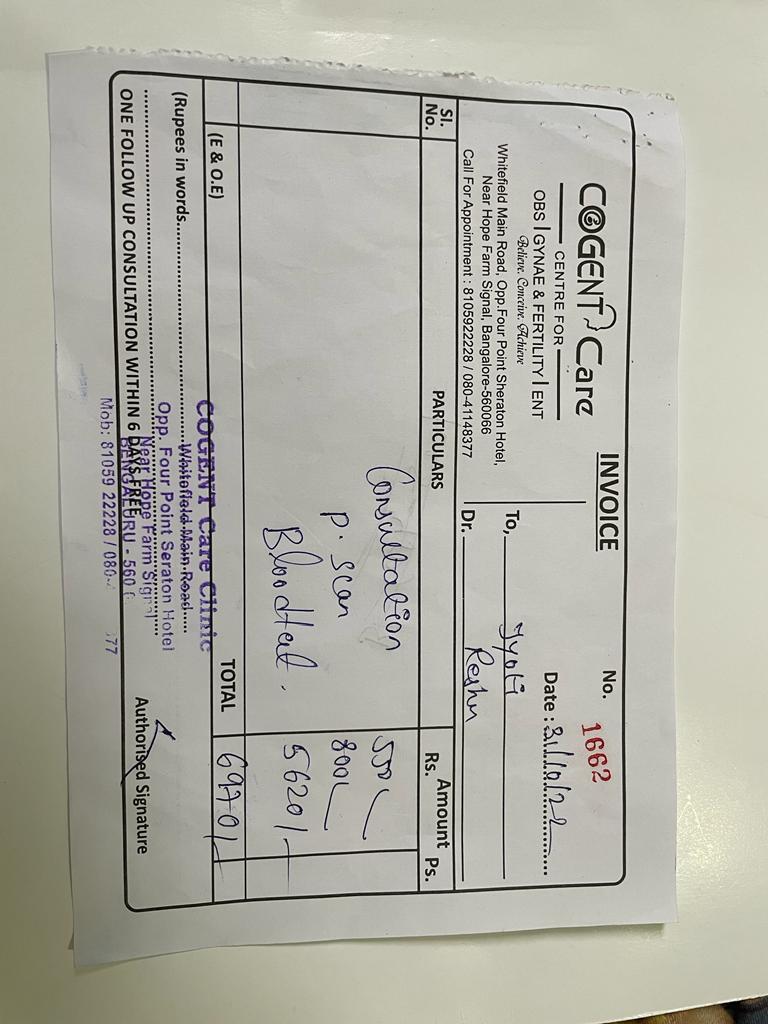 INVOICE
No. 1662
COGENT Care
CENTRE FOR
OBS | GYNAE & FERTILITY | ENT
Believe. Conceive. Achieve
Whitefield Main Road, Opp.Four Point Sheraton Hotel,
Near Hope Farm Signal, Bangalore-560066
Call For Appointment : 8105922228 / 080-41148377
Date : 31/10/22
To, Jyoti
Dr. Reshu
Sl. No. PARTICULARS Amount Rs. Ps.
Consultation 550/-
P. Scan 800/-
Bloodtest. 5620/-
(E & O.E) TOTAL 6970/-
(Rupees in words
ONE FOLLOW UP CONSULTATION WITHIN 6 DAYS FREE
Authorised Signature
COGENT Care Clinic
Whitefield Main Road
Opp. Four Point Seraton Hotel
Near Hope Farm Signal
BENGALURU - 560
Mob: 81059 22228 / 080- 77